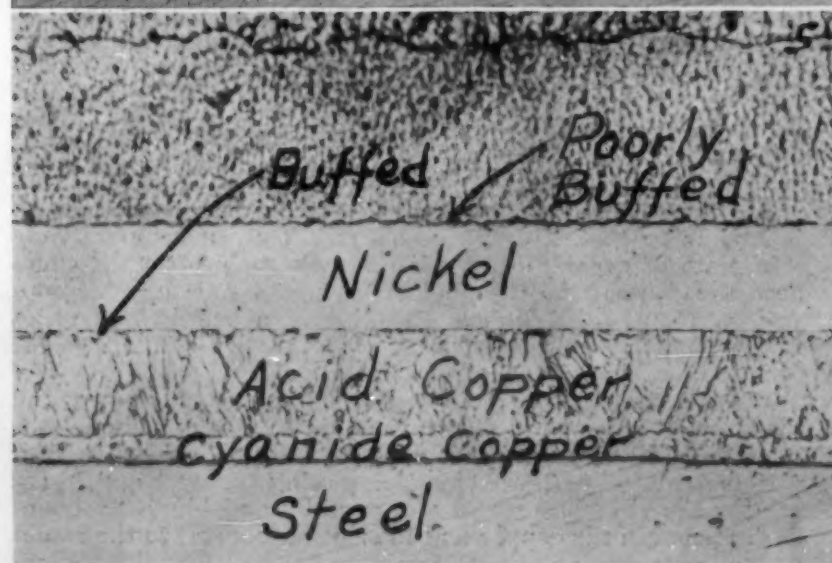 5
Buffed
Poorly
Buffed
Nickel
Acid Copper
Cyanide Copper
Steel